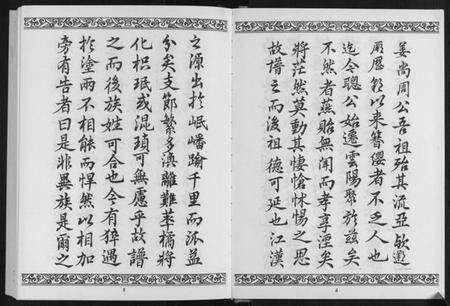 姜尚周公吾祖殆其流亞欤週
厥歷朝以来簪纓者不乏人也
迄今聰公始遷雲陽聚於兹矣
不然者燕貽無聞而孝享湮矣
將茫然莫動其悽愴怵惕之思
故譜立而後祖德可延也江漢
之源出於岷嶓踰千里而派益
分矣支節繁多滇離難萃橘將
化枳珉或混瑣可無慮乎故譜
之而後族姓可合也今有猝遇
於塗兩不相能而悍然以相加
旁有告者曰是非異族是爾之